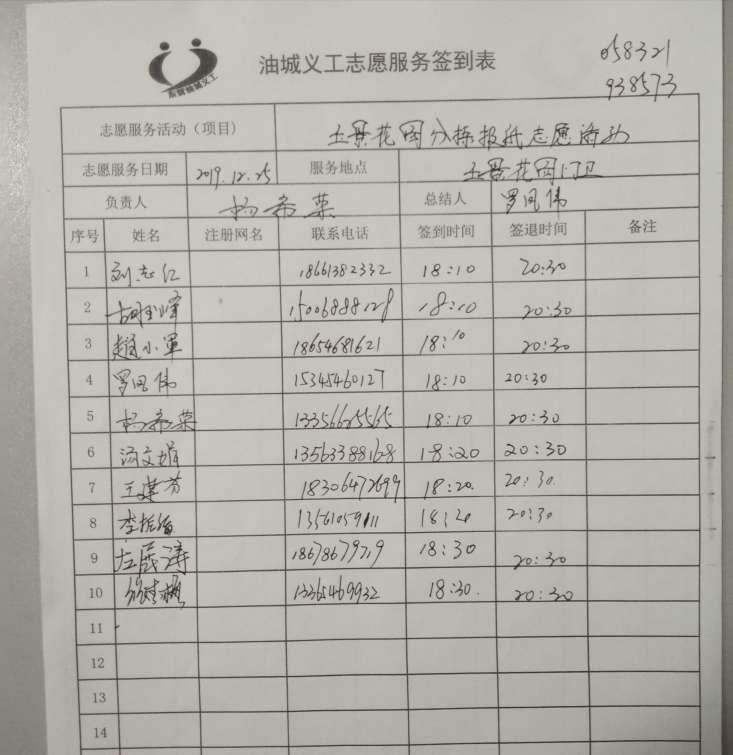 东营油城义工
油城义工志愿服务签到表
058321
938573
志愿服务活动（项目） 花园分拣报纸志愿活动
志愿服务日期 2019.12.25 服务地点 花园门卫
负责人 杨希荣 总结人 罗凤伟
序号 姓名 注册网名 联系电话 签到时间 签退时间 备注
1 刘志仁 18661382332 18:10 20:30
2 15006888128 18:10 20:30
3 赵小军 18654681621 18:10 20:30
4 罗凤伟 15345460127 18:10 20:30
5 杨希荣 13356625565 18:10 20:30
6 汤文娟 13563388168 18:20 20:30
7 18306472699 18:20. 20:30.
8 13561059111 18:20 20:30
9 左辰涛 18:30 20:30
10 13365469932 18:30. 20:30
11
12
13
14